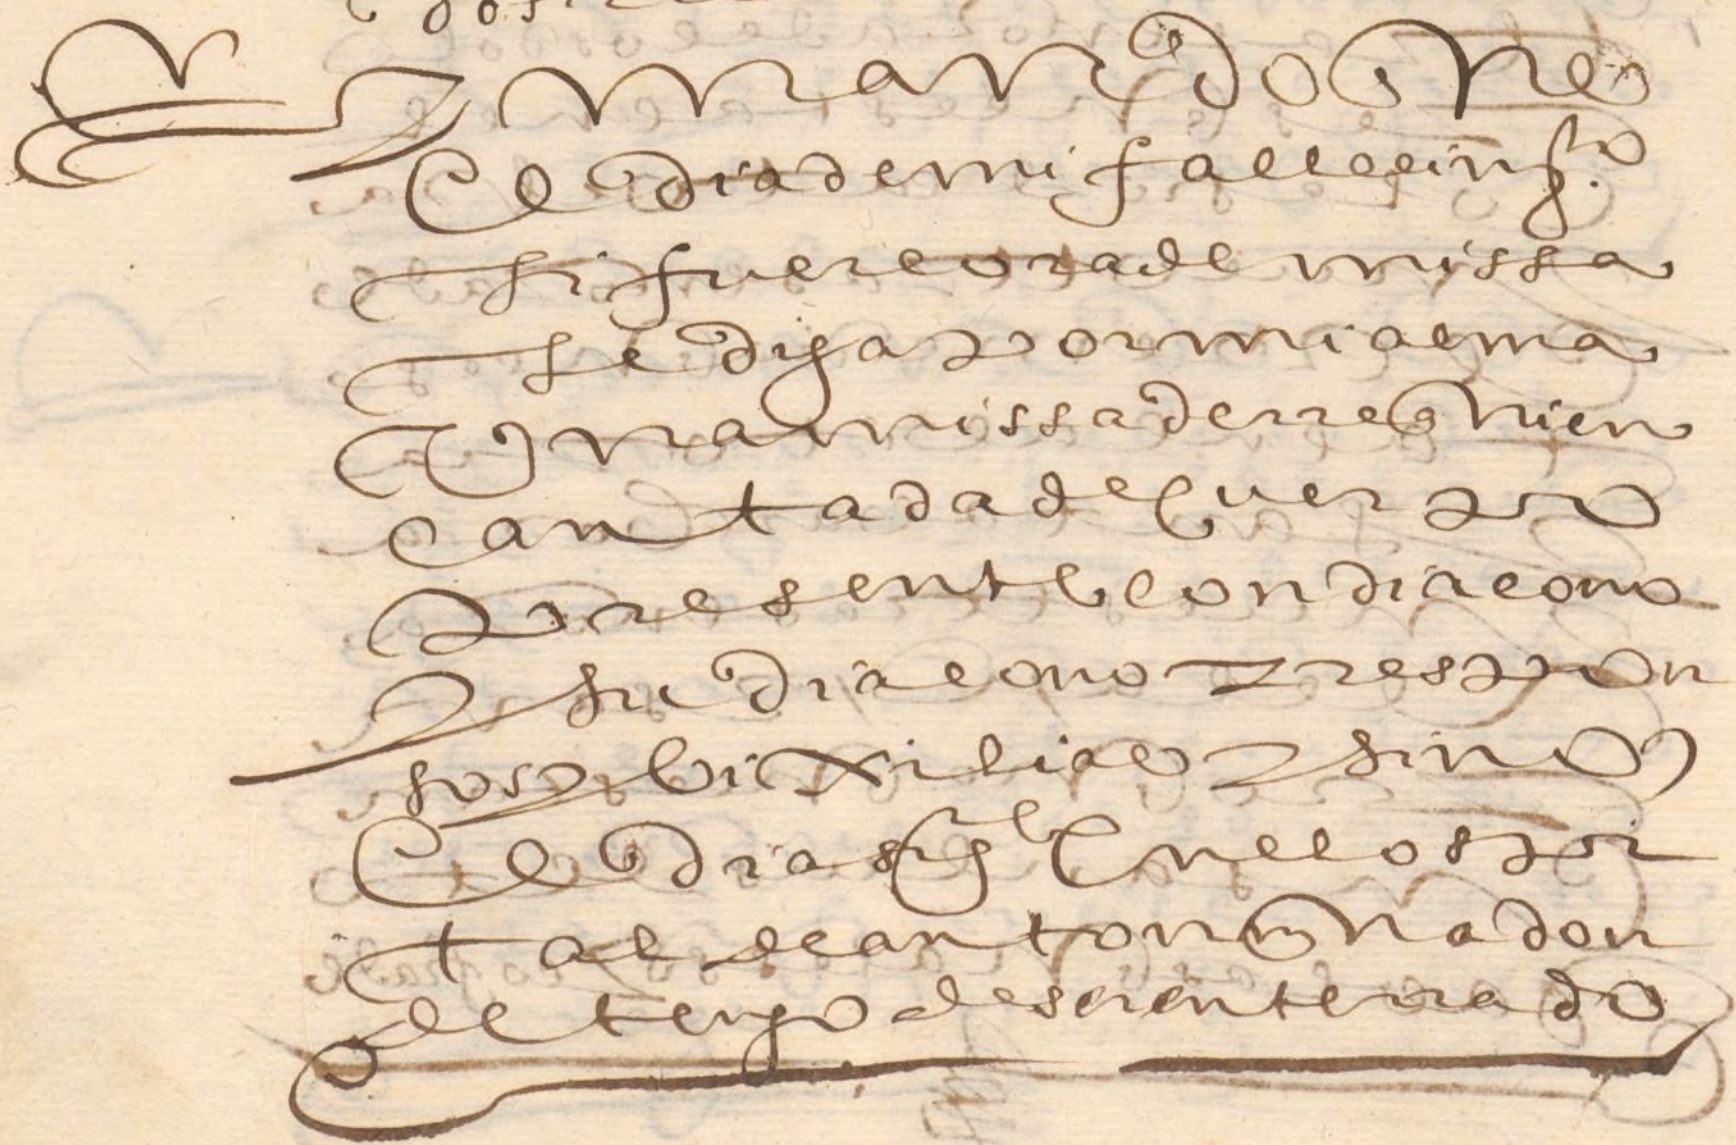 Y mando que
el dia de mi fallecimy.to
si fuere ora de missa
se diga por mi alma
Una missa de rrequien
cantada de cuerpo
presente con diacono
y su diacono y respon
sos y bixilia y sino
el dia sig.e en el os pi
tal de anton m̃n a don
de tengo de ser enterrado